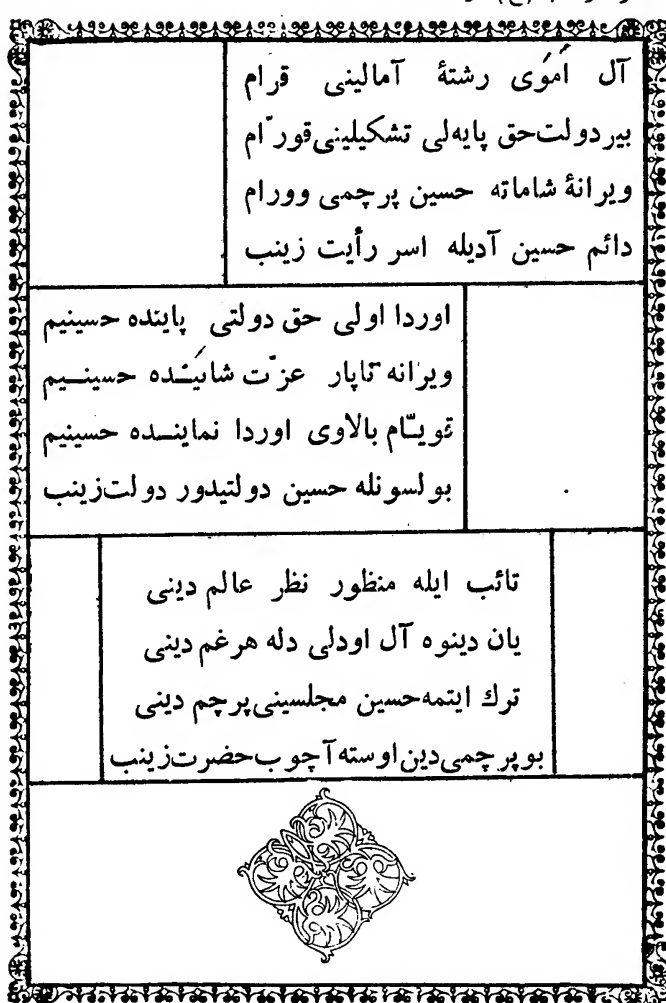 آل اُموَی رشتهٔ آمالینی قرام
بیر دولت‌حق پایه‌لی تشکیلینی قورّام
ویرانهٔ شاماته حسین پرچمی وورام
دائم حسین آدیله اسر رأیت زینب
اوردا اولی حق دولتی پاینده حسینیم
ویرانه تاپار عزّت شایَنده حسینیم
قویّام بالاوی اوردا نماینده حسینیم
بولسونله حسین دولتیدور دولت‌زینب
تائب ایله منظور نظر عالم دینی
یان دینوه آل اودلی دله هرغم دینی
ترك ایتمه‌حسین مجلسینی پرچم دینی
بو پرچمی دین اوسته آچوب حضرت‌زینب